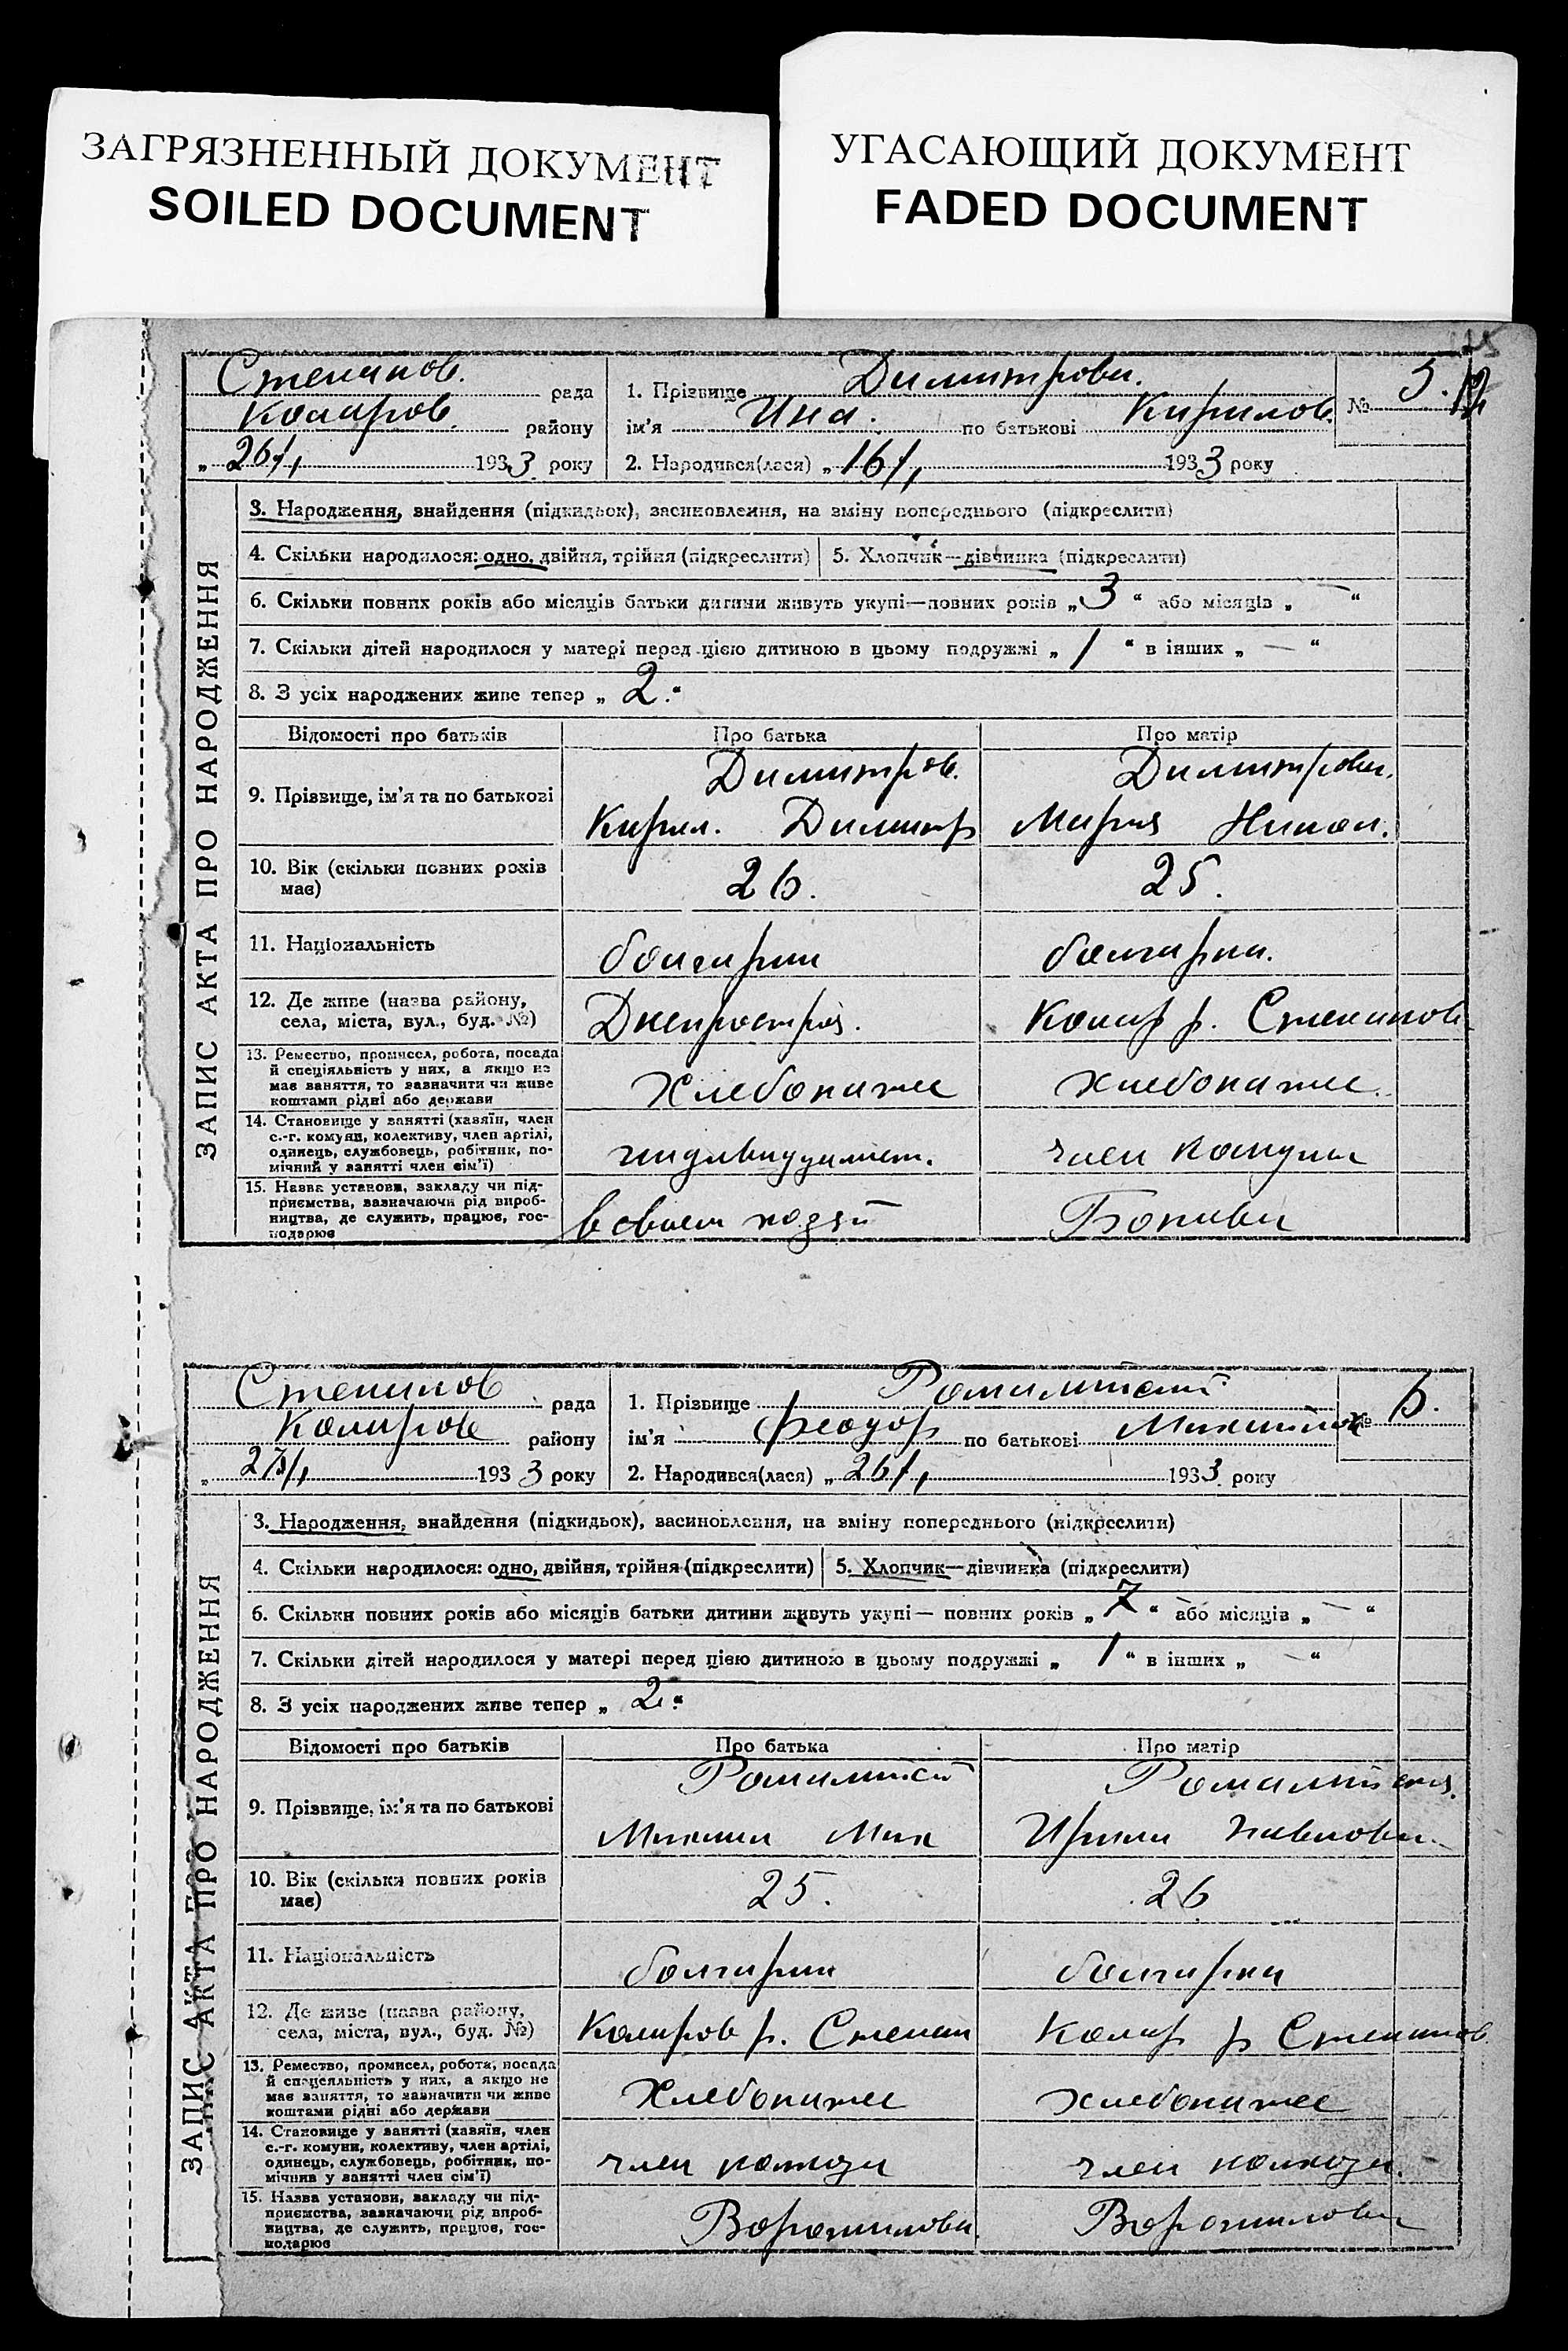 ЗАГРЯЗНЕННЫЙ ДОКУМЕНТ
SOILED DOCUMENT
УГАСАЮЩИЙ ДОКУМЕНТ
FADED DOCUMENT
рада
Коларов. району
„ 26/1 1933 року
1. Прізвище Димитрова.
ім'я Ина. по батькові Кирилов.
2. Народився(лася) „ 16/1 1933 року
№ 5.
ЗАПИС АКТА ПРО НАРОДЖЕННЯ
3. Народження, знайдення (підкидьок), засиновлення, на зміну попереднього (підкреслити)
4. Скільки народилося: одно, двійня, трійня (підкреслити) 5. Хлопчик—дівчинка (підкреслити)
6. Скільки повних років або місяців батьки дитини живуть укупі—повних років „ 3 “ або місяців „ — “
7. Скільки дітей народилося у матері перед цією дитиною в цьому подружжі „ 1 “ в інших „ — “
8. З усіх народжених живе тепер „ 2. “
Відомості про батьків Про батька Про матір
9. Прізвище, ім'я та по батькові
Димитров. Димитрова.
Кирил. Димитр Мария Никол.
10. Вік (скільки повних років
має)
26. 25.
11. Національність болгарин болгарка.
12. Де живе (назва району,
села, міста, вул., буд. №)
Днепрострой. Колар р. Степанов
13. Ремество, промисел, робота, посада
й спеціяльність у них, а якщо не
має заняття, то зазначити чи живе
коштами рідні або держави
Хлебопашес Хлебопашес.
14. Становище у занятті (хазяїн, член
с.-г. комуни, колективу, член артілі,
одинець, службовець, робітник, по-
мічний у занятті член сім'ї)
член
15. Назва установи, закладу чи під-
приємства, зазначаючи рід вироб-
ництва, де служить, працює, гос-
подарює
в своем хозяй
Степанов рада
Коларов району
„ 27/1 1933 року
1. Прізвище
ім'я Феодор по батькові Михайлов
2. Народився(лася) „ 26/1 1933 року
№ 6.
ЗАПИС АКТА ПРО НАРОДЖЕННЯ
3. Народження, знайдення (підкидьок), засиновлення, на зміну попереднього (підкреслити)
4. Скільки народилося: одно, двійня, трійня (підкреслити) 5. Хлопчик—дівчинка (підкреслити)
6. Скільки повних років або місяців батьки дитини живуть укупі— повних років „ 7 “ або місяців „ — “
7. Скільки дітей народилося у матері перед цією дитиною в цьому подружжі „ 1 “ в інших „ — “
8. З усіх народжених живе тепер „ 2. “
Відомості про батьків Про батька Про матір
9. Прізвище, ім'я та по батькові
Михаил Мих Павлова
10. Вік (скільки повних років
має)
25. 26
11. Національність болгарин болгарка
12. Де живе (назва району,
села, міста, вул., буд. №)
Коларов р. Степан Колар р Степанов
13. Ремество, промисел, робота, посада
й спецеяльність у них, а якщо не
має заняття, то зазначити чи живе
коштами рідні або держави
Хлебопашес Хлебопашес
14. Становище у занятті (хазяїн, член
с.-г. комуни, колективу, член артілі,
одинець, службовець, робітник, по-
мічнив у занятті член сім'ї)
член колхоза член колхоза.
15. Назва установи, закладу чи під-
приємства, зазначаючи рід вироб-
ництва, де служить, працює, гос-
подарює
Ворошилова. Ворошилова